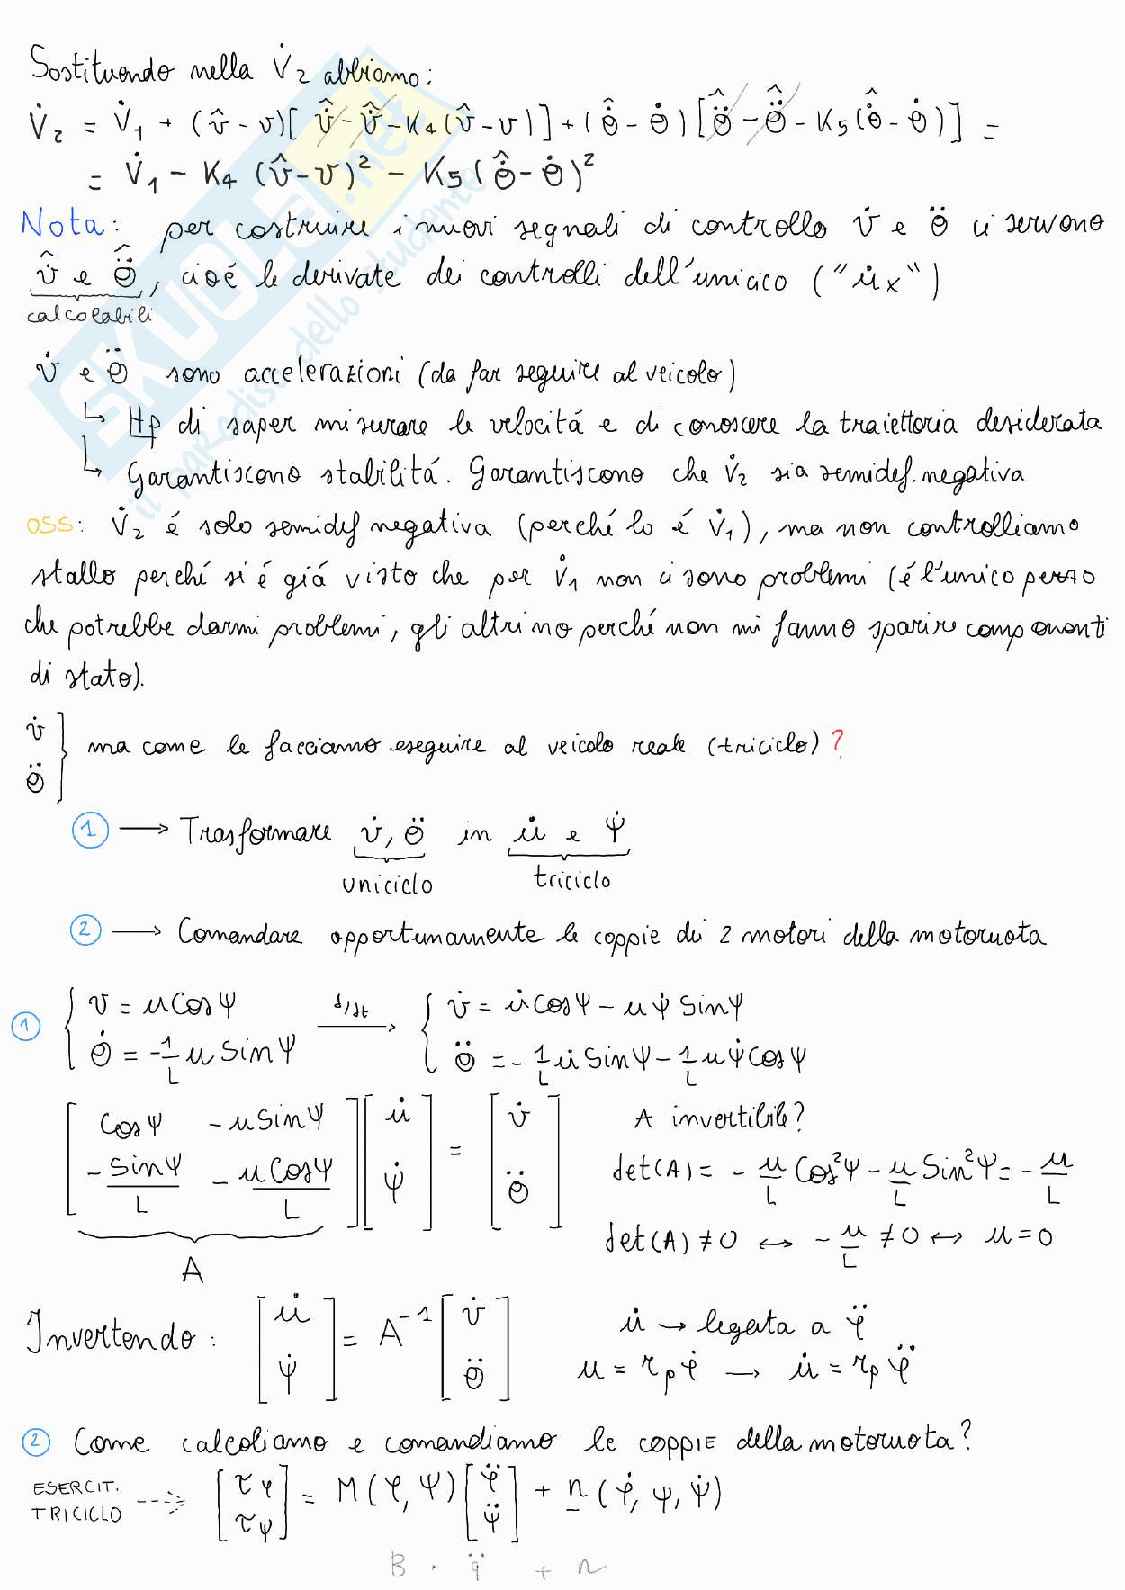 Sostituendo nella V̇₂ abbiamo:
V̇₂ = V̇₁ + (v̂ - v)[ v̂̇ - v̂̇ - K₄(v̂ - v)] + (θ̂̇ - θ̇)[θ̂̈ - θ̂̈ - K₅(θ̂̇ - θ̇)] =
= V̇₁ - K₄ (v̂ - v)² - K₅(θ̂̇ - θ̇)²
Nota: per costruire i nuovi segnali di controllo v̇ e θ̈ ci servono
v̂̇ e θ̂̈, cioé le derivate dei controlli dell'uniciclo ("u̇x")
calcolabili
v̇ e θ̈ sono accelerazioni (da far seguire al veicolo)
↳ Hp di saper misurare le velocitá e di conoscere la traiettoria desiderata
↳ Garantiscono stabilitá. Garantiscono che V̇₂ sia semidef. negativa
OSS: V̇₂ é solo semidef negativa (perché lo é V̇₁), ma non controlliamo
stallo perché si é giá visto che per V̇₁ non ci sono problemi (é l'unico pezzo
che potrebbe darmi problemi, gli altri no perché non mi fanno sparire componenti
di stato).
v̇
θ̈ } ma come le facciamo eseguire al veicolo reale (triciclo)?
① → Trasformare v̇, θ̈ in u̇ e ψ̇
uniciclo triciclo
② → Comandare opportunamente le coppie dei 2 motori della motoruota
① { v = u Cosψ d/dt → { v̇ = u̇ Cosψ - u ψ̇ Sinψ
θ̇ = -1/L u Sinψ θ̈ = -1/L u̇ Sinψ - 1/L u ψ̇ Cosψ
[ Cosψ -u Sinψ ] [ u̇ ] = [ v̇ ] A invertibile?
[ -Sinψ/L -u Cosψ/L ] [ ψ̇ ] [ θ̈ ] det(A) = - u/L Cos²ψ - u/L Sin²ψ = - u/L
A det(A) ≠ 0 ↔ - u/L ≠ 0 ↔ u = 0
Invertendo: [ u̇ ψ̇ ] = A⁻¹ [ v̇ θ̈ ] u̇ → legata a φ̈
u = rₚ φ̇ → u̇ = rₚ φ̈
② Come calcoliamo e comandiamo le coppie della motoruota?
ESERCIT. TRICICLO --> [ τφ τψ ] = M(φ, ψ) [ φ̈ ψ̈ ] + n(φ̇, ψ, ψ̇)
B · q̈ + n
SKUOLA.net
il paradiso dello studente